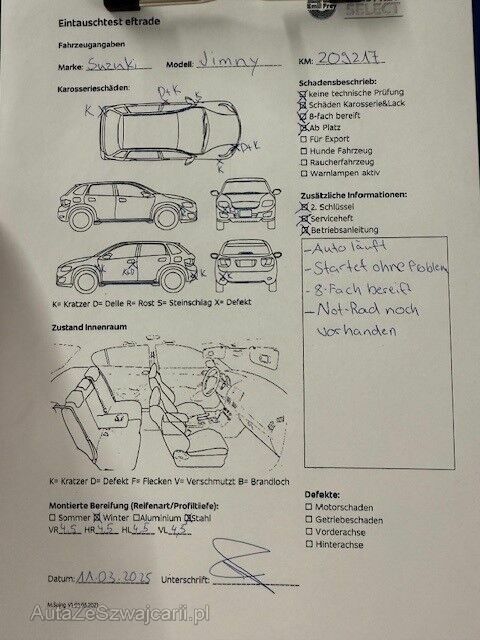 SELECT
Eintauschtest eftrade
Fahrzeugangaben
Marke: Suzuki Modell: Jimny KM: 209217
Karosserieschäden:
K D+K K
D+K
K
K K+D K K
K= Kratzer D= Delle R= Rost S= Steinschlag X= Defekt
Zustand Innenraum
K= Kratzer D= Defekt F= Flecken V= Verschmutzt B= Brandloch
Montierte Bereifung (Reifenart/Profiltiefe):
☐ Sommer ☒ Winter ☐ Aluminium ☒ Stahl
VR 4.5 HR 4.5 HL 4.5 VL 4,5
Datum: 11.03.2025 Unterschrift:
Schadensbeschrieb:
☒ keine technische Prüfung
☒ Schäden Karosserie&Lack
☒ 8-fach bereift
☒ Ab Platz
☐ Für Export
☐ Hunde Fahrzeug
☐ Raucherfahrzeug
☐ Warnlampen aktiv
Zusätzliche Informationen:
☒ 2. Schlüssel
☒ Serviceheft
☒ Betriebsanleitung
- Auto läuft
- Startet ohne Problem
- 8-Fach bereift
- Not-Rad noch
vorhanden
Defekte:
☐ Motorschaden
☐ Getriebeschaden
☐ Vorderachse
☐ Hinterachse
AutaZeSzwajcarii.pl